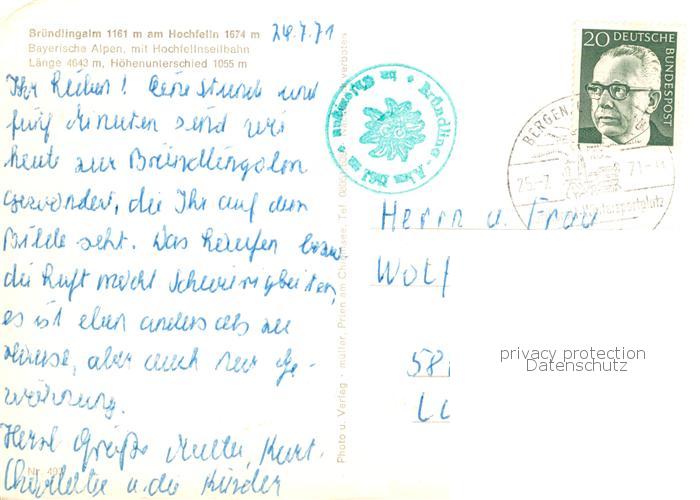 Bründlingalm 1161 m am Hochfelln 1674 m
Bayerische Alpen, mit Hochfellnseilbahn
Länge 4043 m, Höhenunterschied 1055 m
24.7.71
Ihr Lieben! Eine Stunde und
fünf Minuten sind wir
heute zur Bründlingalm
gewandert, die Ihr auf dem
Bilde seht. Das Laufen bzw
die Luft macht Schwierigkeiten,
es ist eben anders als zu
Hause, aber auch nur Ge-
wöhnung.
Herzl Grüße Mutti, Kurt.
Charlotte u. die Kinder
Nr. 40
Photo u. Verlag - müller, Prien am Chiemsee, Tel
verboten
Bründling-Alm
20 DEUTSCHE
BUNDESPOST
BERGEN,
25.-7. 71-11
Wintersportplatz
Herrn u. Frau
Wolf
58
privacy protection
Datenschutz